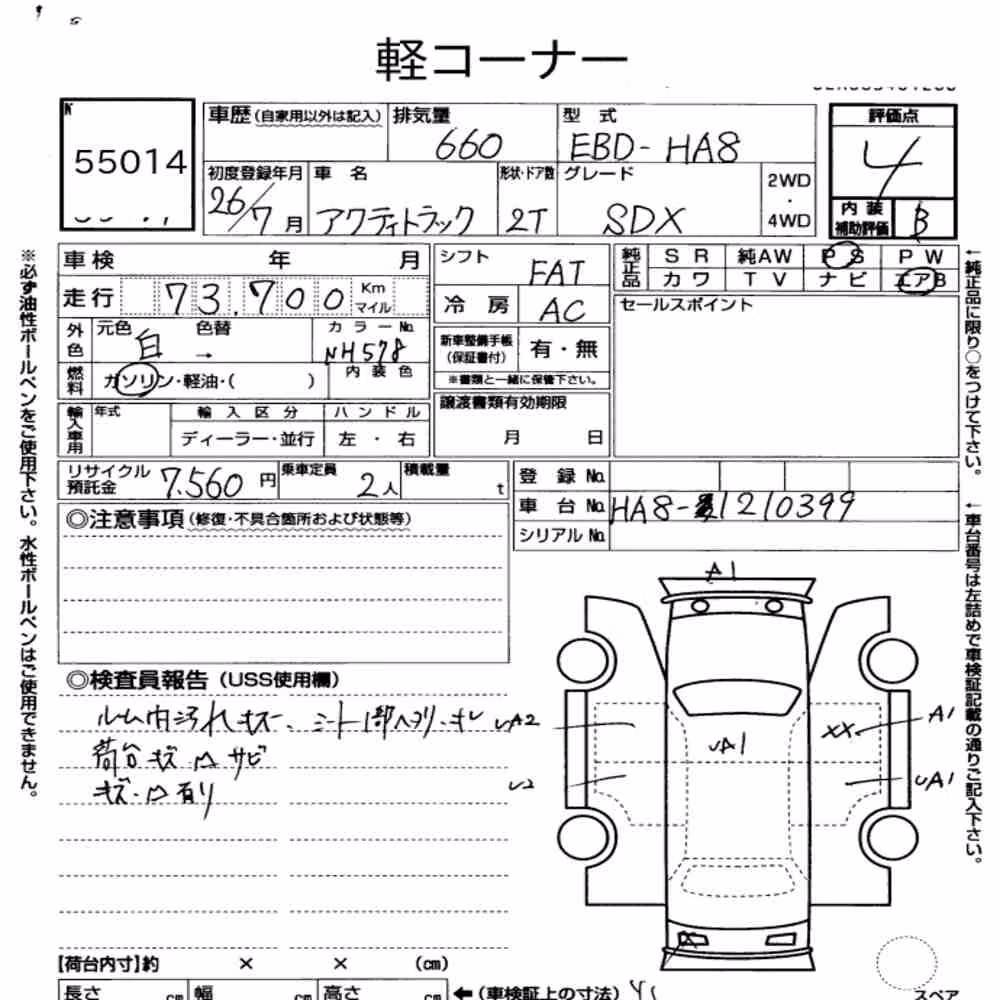 軽コーナー
№
55014
車歴 (自家用以外は記入)
排気量
660
型 式
EBD-HA8
評価点
4
初度登録年月
26/7月
車 名
アクティトラック
形状・ドア数
2T
グレード
SDX
2WD
・
4WD
内装
補助評価
B
車検 年 月
シフト
FAT
純正品
SR 純AW PS PW
カワ TV ナビ エアB
走行 73,700 Km
マイル
冷房
AC
セールスポイント
外色
元色 白
色替 →
カラーNo.
NH578
新車整備手帳
(保証書付)
有・無
※書類と一緒に保管下さい。
燃料
ガソリン・軽油・( )
内装色
輸入車用
年式
輸入区分
ディーラー・並行
ハンドル
左・右
譲渡書類有効期限
月 日
リサイクル
預託金
7,560円
乗車定員
2人
積載量
t
登録 No.
車台 No. HA8-1210399
シリアル No.
◎注意事項 (修復・不具合箇所および状態等)
◎検査員報告 (USS使用欄)
ルーム内汚れキズ、シート1部ヘタリ・キレ
荷台キズ・凹サビ
キズ・凹有り
A1
UA2
UA1
XX
A1
U2
UA1
X
【荷台内寸】約 × × (cm)
長さ cm 幅 cm 高さ cm ←(車検証上の寸法)
スペア
※必ず油性ボールペンをご使用下さい。水性ボールペンはご使用できません。
←純正品に限り○をつけて下さい。
←車台番号は左詰めで車検証記載の通りご記入下さい。